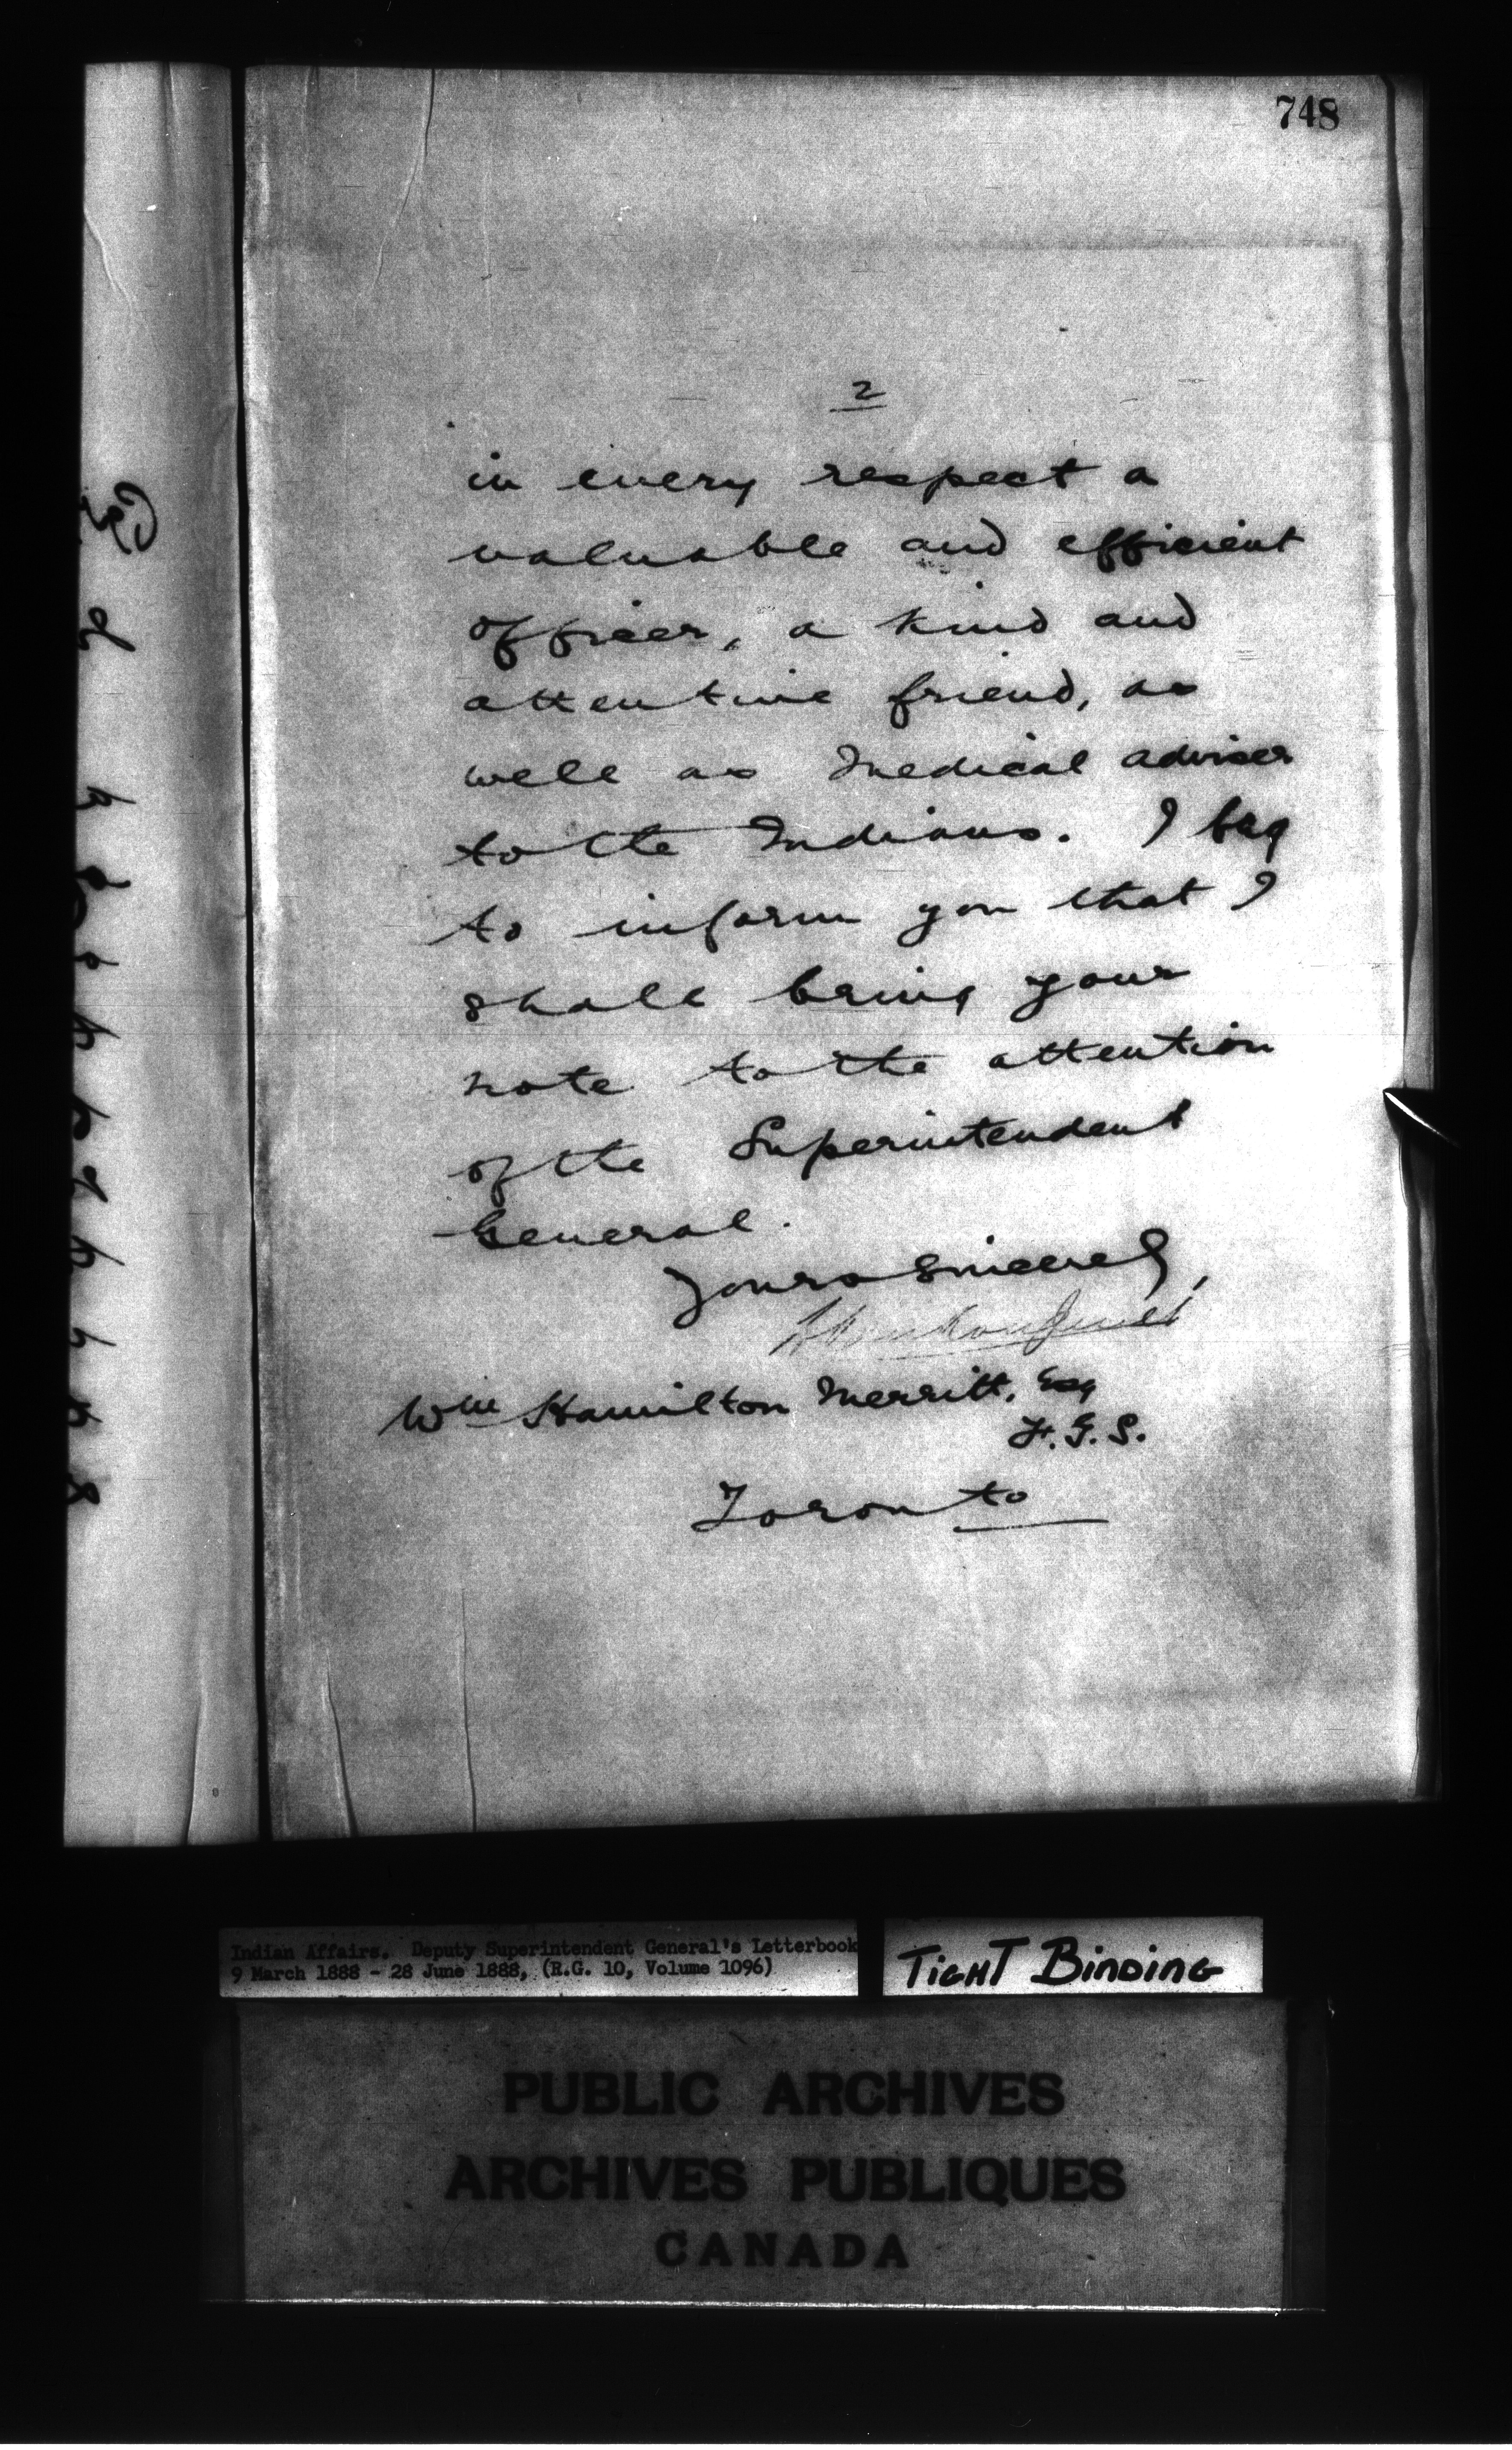 748
2
in every respect a
valuable and efficient
officer, a kind and
attentive friend, as
well as Medical adviser
to the Indians. I beg
to inform you that I
shall bring your
note to the attention
of the Superintendent
General.
Yours sincerely,
L Vankoughnet
Wm Hamilton Merritt, Esq
F.G.S.
Toronto
Indian Affairs. Deputy Superintendent General's Letterbook
9 March 1888 - 28 June 1888, (R.G. 10, Volume 1096)
TIGHT BINDING
PUBLIC ARCHIVES
ARCHIVES PUBLIQUES
CANADA